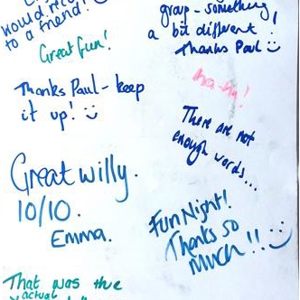 would
to a friend!
Great fun!
Thanks Paul - keep
it up!
Great willy.
10/10.
Emma.
That was the
actual
group - something
a bit different!
Thanks Paul
ha-ha!
There are not
enough words...
Fun Night!
Thanks so
much!!